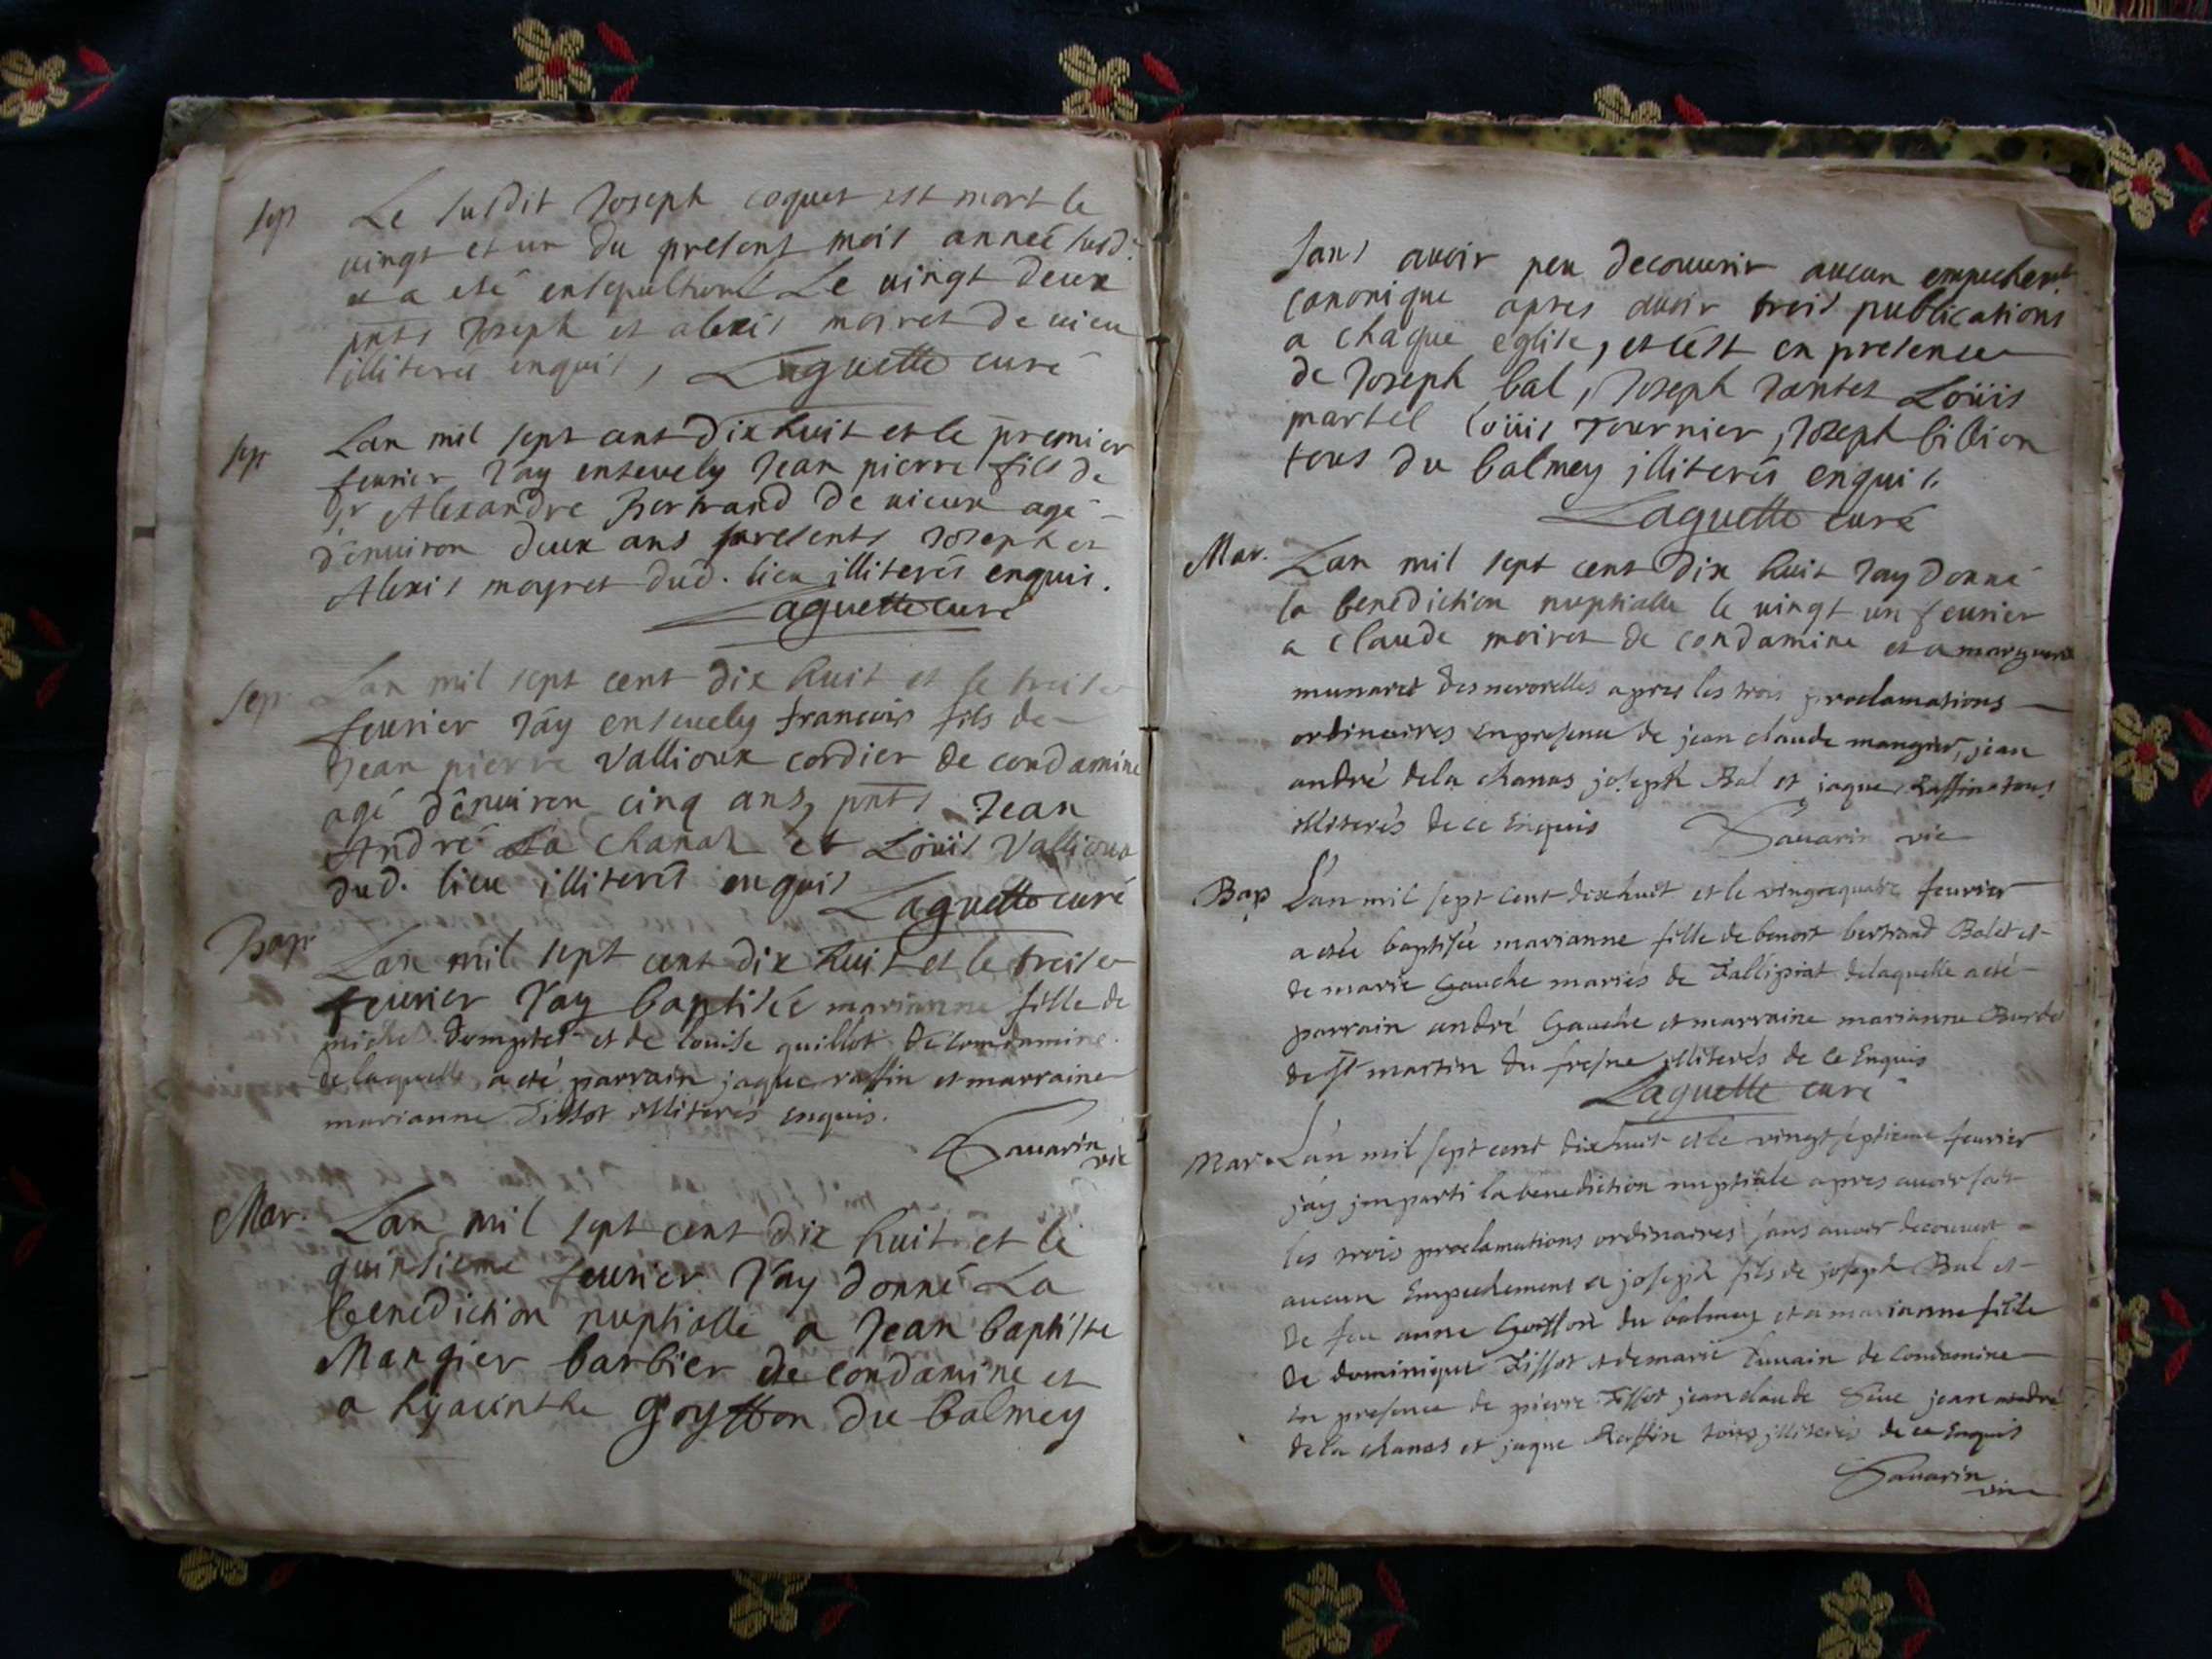 sep Le susdit Joseph coquet est mort le
vingt et un du present mois année susd.
et a eté ensepulturé Le vingt deux
pnts Joseph et alexis moiret de vieu
illiterés enquis, Laguette curé
sep Lan mil sept cent Dix huit et le premier
feurier Jay enseuely Jean pierre fils de
Sr Alexandre Bertrand de vieux agé
d'enuiron deux ans presents Joseph et
Alexis moyret dud. lieu illiterés enquis.
Laguette curé
Sep Lan mil sept cent dix huit et le treise
feurier Jay enseuely francois fils de
Jean pierre Vallioux cordier de condamine
agé dénuiron cinq ans, pnts Jean
André La Chanaz et Loüis Vallioux
dud. lieu illiterés enquis Laguette curé
Bap Lan mil sept cent dix huit et le treise
feurier Jay baptisée marianne fille de
michel et de louise guillot de condamine
delaquelle a eté parrain jaque raffin et marraine
marianne Tissot illiterés enquis.
Sauarin vic
Mar. Lan mil sept cent dix huit et le
quinsieme feurier Jay donné La
benediction nuptialle a Jean baptiste
Mangier barbier de condamine et
a hyacinthe goyffon du balmey
sans auoir peu decouurir aucun empechemt
canonique apres auoir trois publications
a chaque eglise, et cést en presence
de Joseph bal, Joseph Loüis
martel Loüis Tournier, Joseph billion
tous du balmey illiterés enquis
Laguette curé
Mar. Lan mil sept cent dix huit Jay donné
la benediction nuptialle le vingt un feurier
a claude moiret de condamine et a
munaret apres les trois proclamations
ordinaires en presence de jean claude mangier, jean
andré dela chanas joseph Bal et jaque Raffin tous
illiterés de ce Enquis Sauarin vic
Bap L'an mil sept cent dixhuit et le vingtequatre feurier
a etée baptisée marianne fille de benoit bertrand Balet et
de marie Gauche mariés de delaquelle a eté
parrain andré Gauche et marraine marianne
de St martin du fresne illiterés de ce Enquis
Laguette curé
Mar. L'an mil sept cent dixhuit et le vingt septieme feurier
j'ay jmparti la benediction nuptiale apres auoir fait
les trois proclamations ordinaires sans auoir decouuert
aucun Empechement a joseph fils de joseph Bal et
de feu anne Goiffon du balmey et a marianne fille
de dominique Tissot et de marie de condamine
en presence de pierre Tissot jean claude jean andré
dela chanas et jaque Raffin tous illiterés de ce Enquis
Sauarin vic